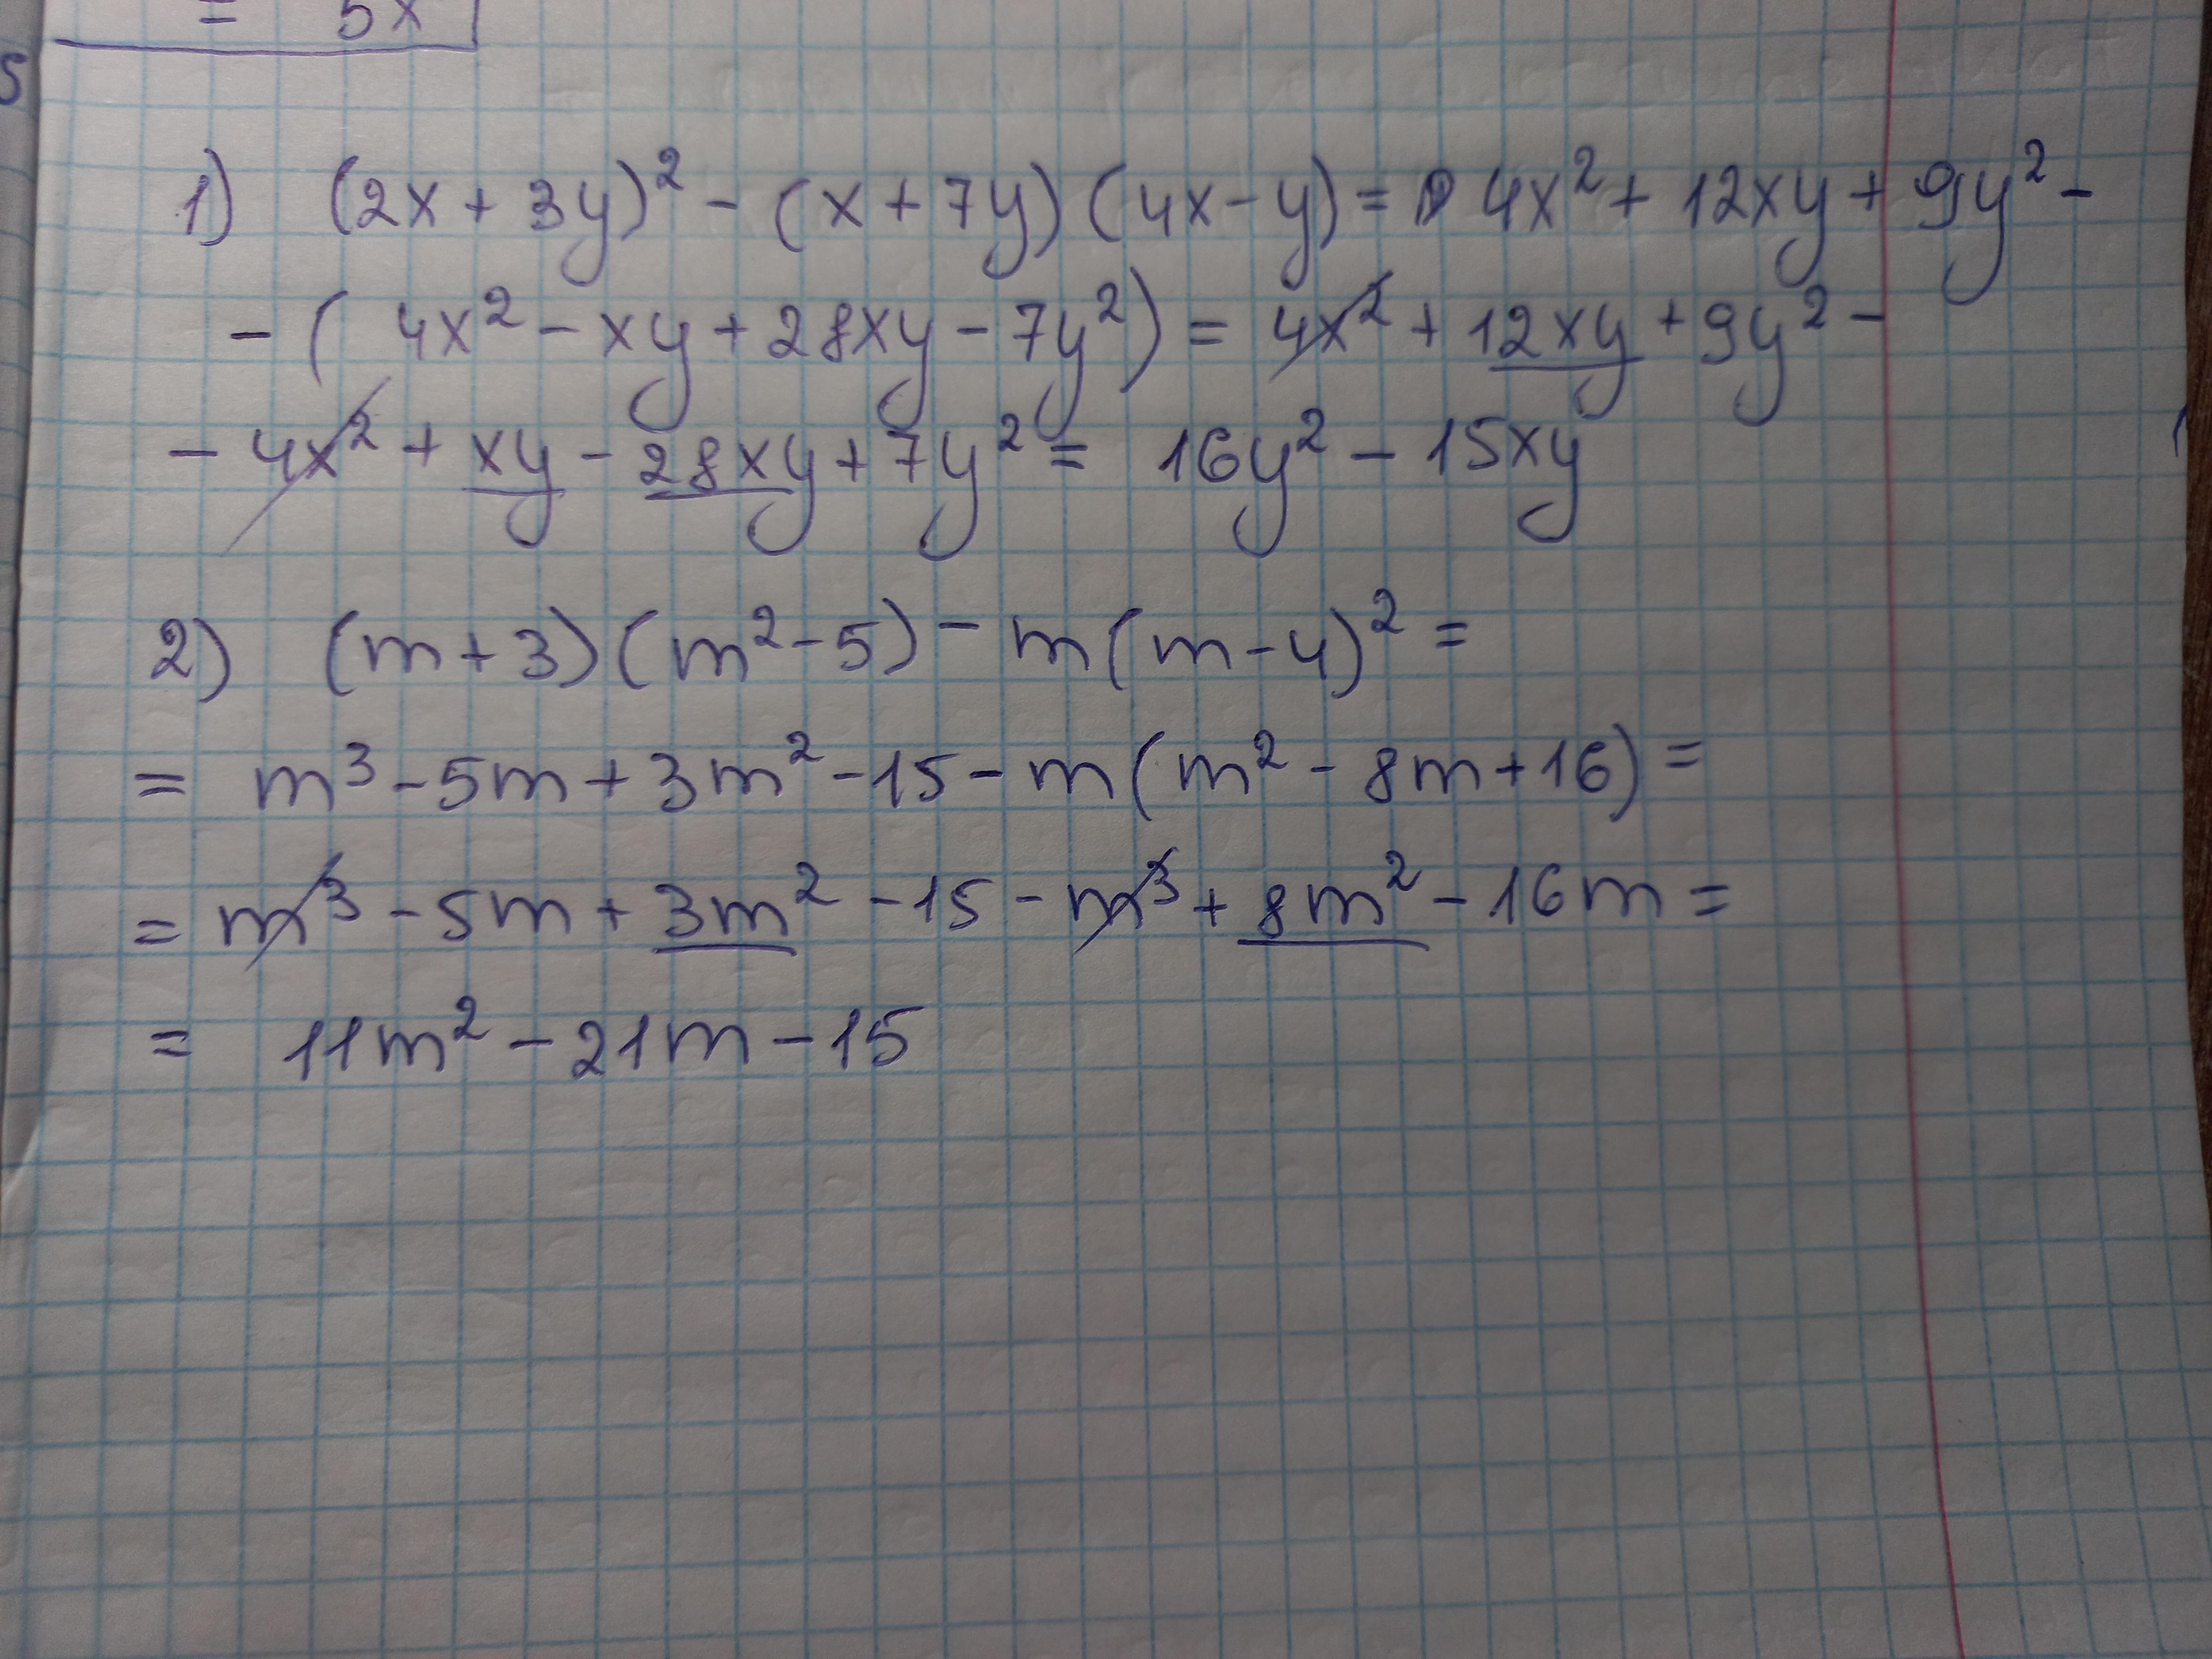 = 5x
5
1) (2x + 3y)² - (x + 7y)(4x - y) = 4x² + 12xy + 9y² -
- (4x² - xy + 28xy - 7y²) = 4x² + 12xy + 9y² -
- 4x² + xy - 28xy + 7y² = 16y² - 15xy
2) (m + 3)(m² - 5) - m(m - 4)² =
= m³ - 5m + 3m² - 15 - m(m² - 8m + 16) =
= m³ - 5m + 3m² - 15 - m³ + 8m² - 16m =
= 11m² - 21m - 15